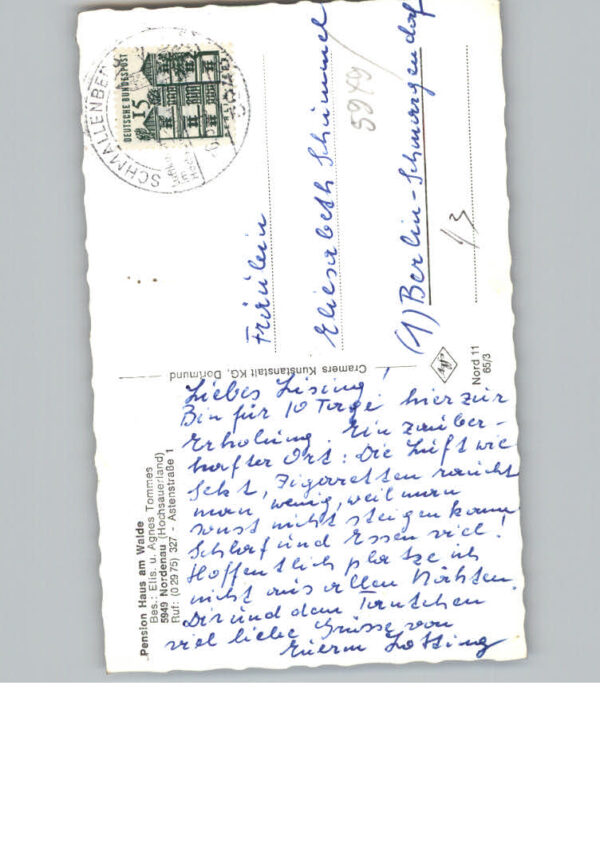 Pension Haus am Walde
Bes.: Elis. u. Agnes Tommes
5949 Nordenau (Hochsauerland)
Ruf: (0 29 75) 327 - Astenstraße 1
Liebes Lising!
Bin für 10 Tage hier zur
Erholung. Ein zauber-
hafter Ort: Die Luft wie
Sekt, Zigaretten raucht
man wenig, weil man
sonst nicht steigen kann
Schlaf und Essen viel!
Hoffentlich platze ich
nicht aus allen Nähten.
Dir und dem Tantchen
viel liebe Grüsse von
Eurem Lotting
Cramers Kunstanstalt KG, Dortmund
Nord 11
65/3
SCHMALLENBE
DEUTSCHE BUNDESPOST
15
Fräulein
Eliesabeth Schimmel
5949
(1) Berlin-Schmargendorf